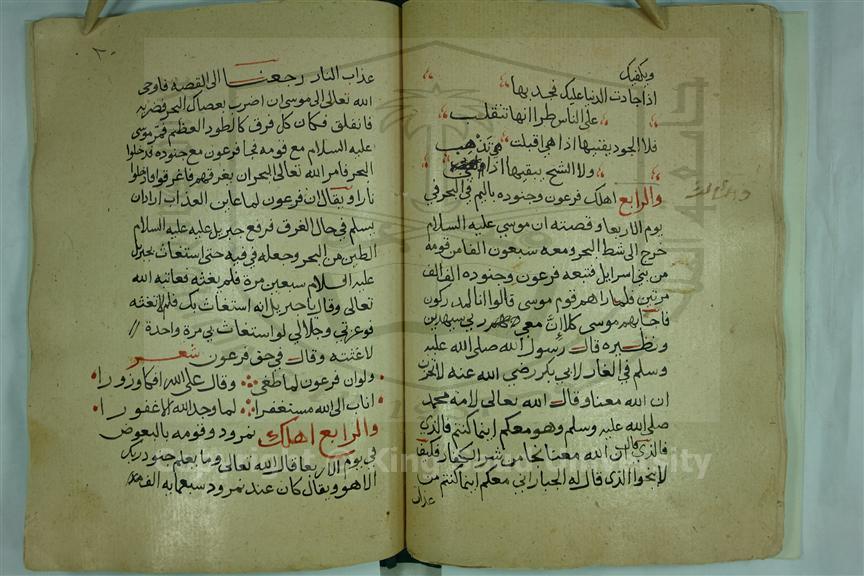 ويكفيك
اذا جادت الدنيا عليك فجد بها
على الناس طرا انها تتقلب
فلا الجود يفنيها اذا هي اقبلت
ولا الشح يبقيها اذا هي تذهب
والرابع اهلك فرعون وجنوده باليم في البحر في
يوم الاربعا وقصته ان موسى عليه السلام
خرج الى شط البحر ومعه سبعون الفا من قومه
من بني اسرايل فتبعه فرعون وجنوده الف الف
مرتين فلما راهم قوم موسى قالوا انا لمدركون
فاجابهم موسى كلا ان معي ربي سيهدين
ونظيره قال رسول الله صلى الله عليه
وسلم في الغار لابي بكر رضي الله عنه لا تحزن
ان الله معنا وقال الله تعالى لامة محمد
صلى الله عليه وسلم وهو معكم اينما كنتم فالذي
قال ان الله معنا نجا من شر الكفار فكيف
لا ينجوا الذي قال له الجبار اني معكم اينما كنتم من
عذاب
عذاب النار رجعنا الى القصة فاوحى
الله تعالى الى موسى ان اضرب بعصاك البحر فضربه
فانفلق فكان كل فرق كالطود العظيم فمر موسى
عليه السلام مع قومه فجا فرعون مع جنوده فدخلوا
البحر فامر الله تعالى البحر ان يغرقهم فاغرقوا فادخلوا
نارا ويقال ان فرعون لما عاين العذاب اراد ان
يسلم في حال الغرق فرفع جبريل عليه السلام
الطين من البحر وجعله في فيه حتى استغاث بجبريل
عليه السلام سبعين مرة فلم يغثه فعاتبه الله
تعالى وقال يا جبريل انه استغاث بك فلم لا تغثه
فوعزتي وجلالي لو استغاث بي مرة واحدة
لاغثته وقال في حق فرعون شعر
ولو ان فرعون لما طغى وقال على الله افكا وزورا
اناب الى الله مستغفرا لما وجد الله الا غفورا
والرابع اهلك نمرود وقومه بالبعوض
في يوم الاربعا قال الله تعالى وما يعلم جنود ربك
الا هو ويقال كان عند نمرود سبعماية الف